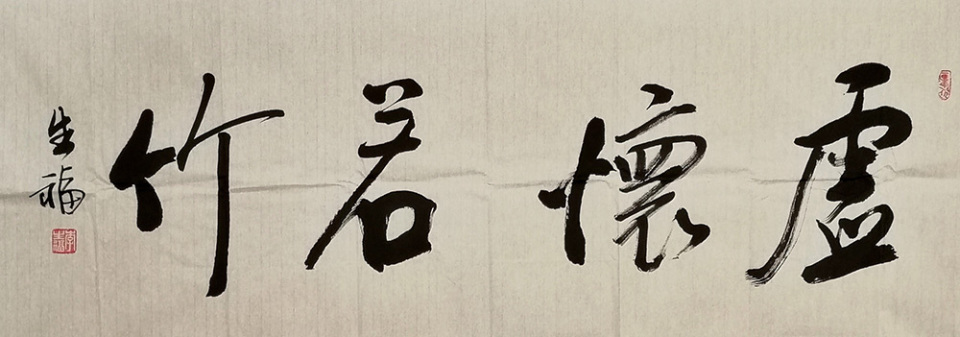 虛懷若竹
生福